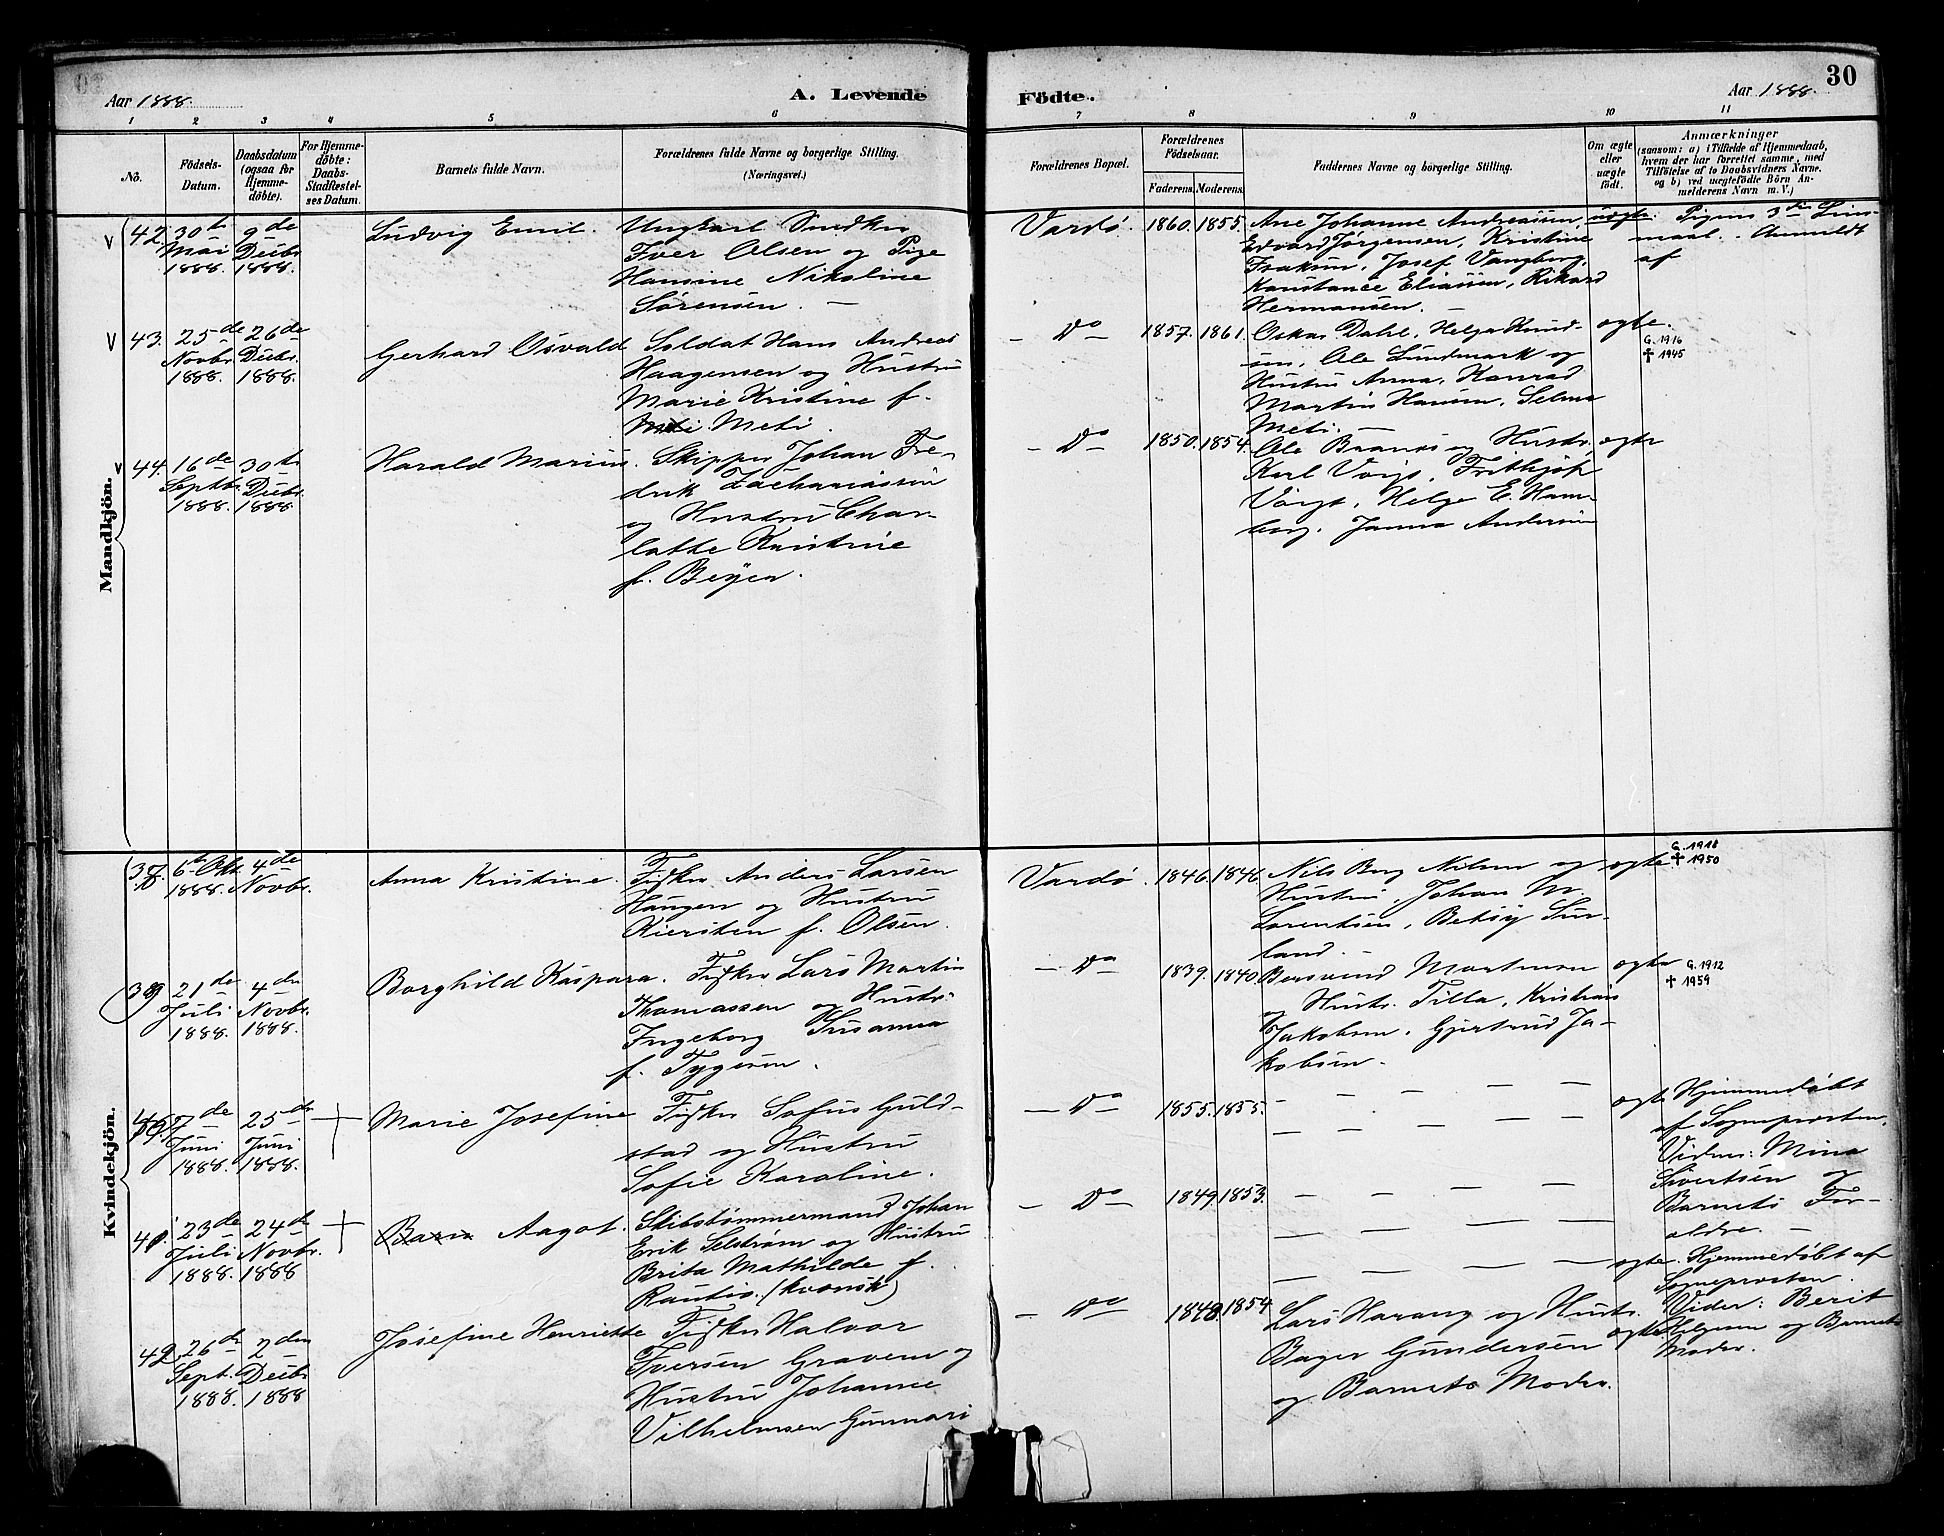 Aar 1888.
A. Levende
Födte.
Aar 1888.
30
1 2 3 4 5 6 7 8 9 10 11
No.
Födsels-
Datum.
Daabsdatum
(ogsaa for
Hjemme-
døbte).
For Hjemme-
döbte:
Daabs-
Stadfæstel-
ses Datum.
Barnets fulde Navn.
Forældrenes fulde Navne og borgerlige Stilling.
(Næringsvei.)
Forældrenes Bopæl.
Forældrenes
Födselsaar.
Faderens.
Moderens.
Faddernes Navne og borgerlige Stilling.
Om ægte
eller
uægte
födt.
Anmærkninger
(saasom: a) i Tilfælde af Hjemmedaab,
hvem der har forrettet samme, med
Tilföielse af to Daabsvidners Navne,
og b) ved uægtefödte Börn An-
melderens Navn m. V.)
Mandkjön.
42.
30te
Mai
1888.
9de
Decbr.
1888.
Ludvig Emil.
Ungkarl Snedker
Iver Olsen og Pige
Hansine Nikoline
Sørensen. —
Vardø.
1860.
1855.
Ane Johanne Andreassen,
Edvard Jørgensen, Kristine
Isaksen, Josef Vangberg,
Konstance Eliassen, Rikard
Hermansen. —
uægte.
Pigens 3die Leier-
maal. Anmeldt
af
43.
25de
Novbr.
1888.
26de
Decbr.
1888.
Gerhard Osvald
Soldat Hans Andreas
Haagensen og Hustru
Marie Kristine f.
Meti.
— Do —
1857.
1861.
Oskar Dahl, Helga Knud-
sen, Ole Lundmark og
Hustru Anna, Konrad
Martin Hansen, Selma
Meti. —
ægte.
G. 1916
† 1945
44.
16de
Septbr.
1888.
30te
Decbr.
1888.
Harald Marius.
Skipper Johan Fre-
drik Zachariassen
og Hustru Char-
lotte Kristine
f. Beyer.
— Do —
1850.
1854.
Ole Brands og Hustr.
Karl Voigt, Frithjof
Voigt, Helge E. Ham-
berg, Janna Andersen
ægte
Kvindekjön.
38.
6te Okt.
1888.
4de
Novbr.
Anna Kristine.
Fisker Anders Larsen
Haugen og Hustru
Kiersten f. Olsen.
Vardø.
1846.
1846.
Nils Berg Nilsen og
Hustru, Johan M.
Lorentsen, Betsy Sun-
land. —
ægte
G. 1918
† 1950
39
21de
Juli
1888.
4de
Novbr.
1888.
Borghild Kaspara.
Fisker Lars Martin
Thomassen og Hustr.
Ingeborg Susanna
f. Tygesen.
— Do —
1839.
1840.
Bersvend Mortensen
og Hustr. Tilla, Kristian
Jakobsen, Gjertrud Ja-
kobsen.
ægte
G. 1912
† 1959
7de
Juni
1888.
25de
Juni
1888.
Marie Josefine
Fisker Sofus Guld-
stad og Hustru
Sofie Karoline.
— Do —
1855.
1855.
ægte
Hjemmedøbt
af Sogneprosten.
Vidner: Mina
Sivertsen og
Barnets For-
ældre. —
41.
23de
Juli
1888.
24de
Novbr.
1888
Aagot.
Skibstømmermand Johan
Erik Selstrøm og Hustru
Brita Mathilde f.
Rautio. (kvænsk)
— Do —
1849.
1853.
ægte.
Hjemmedøbt af
Sogneprosten.
Vider: Berit
Helgesen og Barnets
Moder.
42.
26de
Sept.
1888.
2den
Decbr.
1888
Josefine Henriette
Fisker Halvor
Iversen Gravem og
Hustru Johanne
Vilhelmsen Gunnari
— Do —
1848.
1854
Lars Harang og Hustr.
Bager Gundersen
og Barnets Moder.
ægte